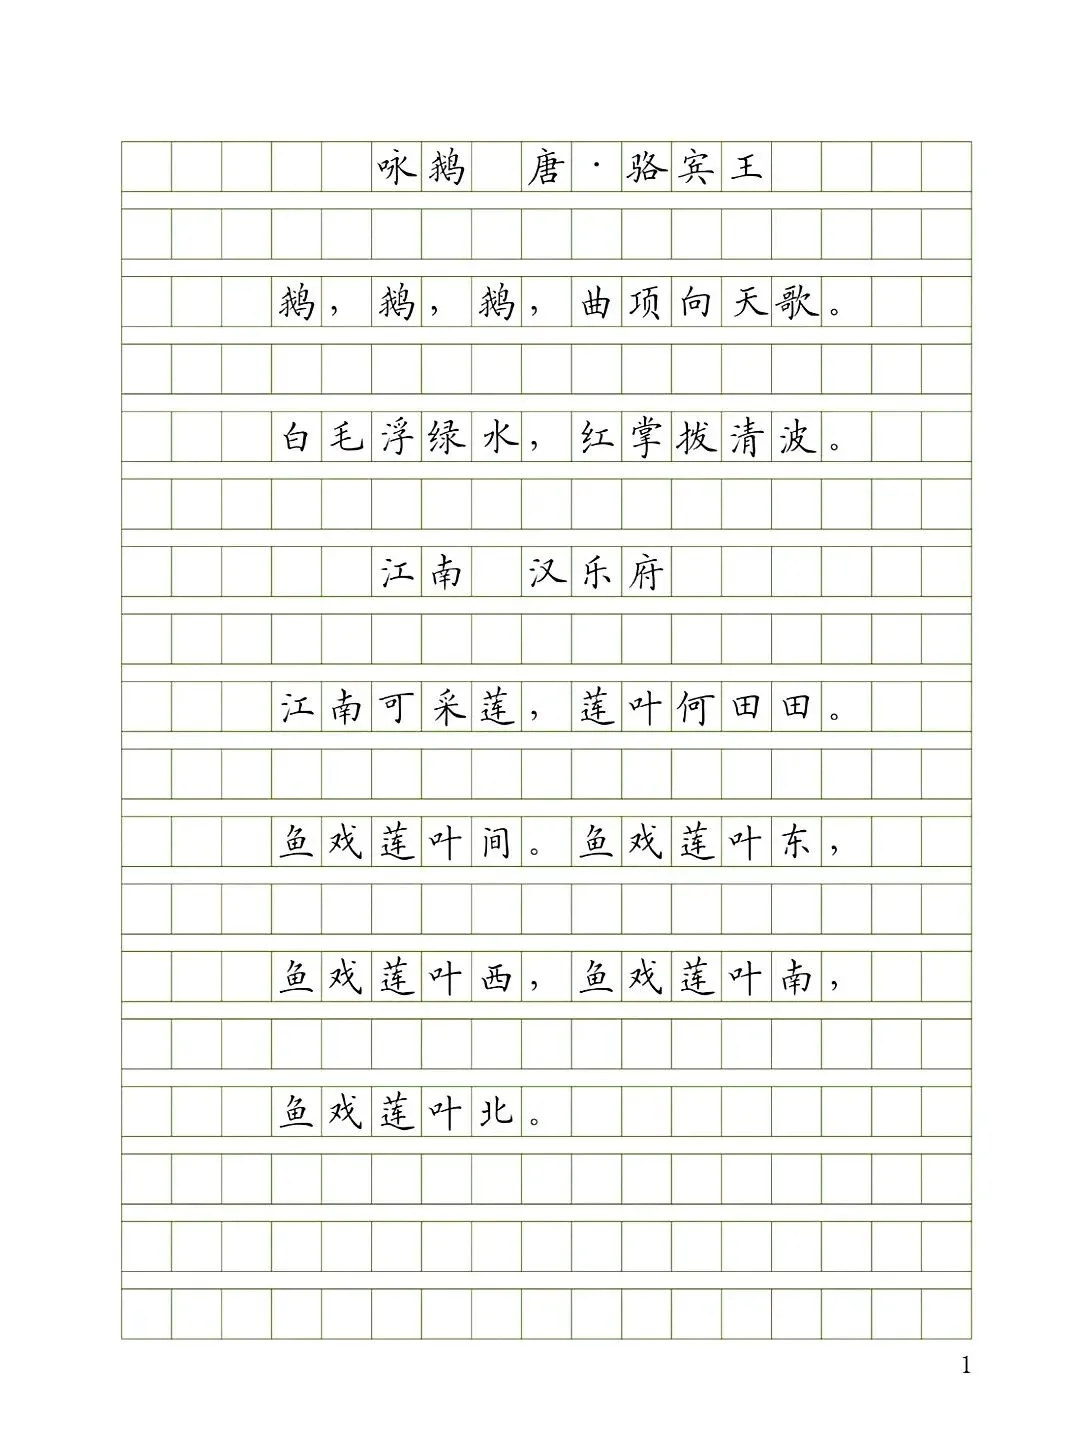 咏鹅 唐·骆宾王
鹅，鹅，鹅，曲项向天歌。
白毛浮绿水，红掌拨清波。
江南 汉乐府
江南可采莲，莲叶何田田。
鱼戏莲叶间。鱼戏莲叶东，
鱼戏莲叶西，鱼戏莲叶南，
鱼戏莲叶北。
1